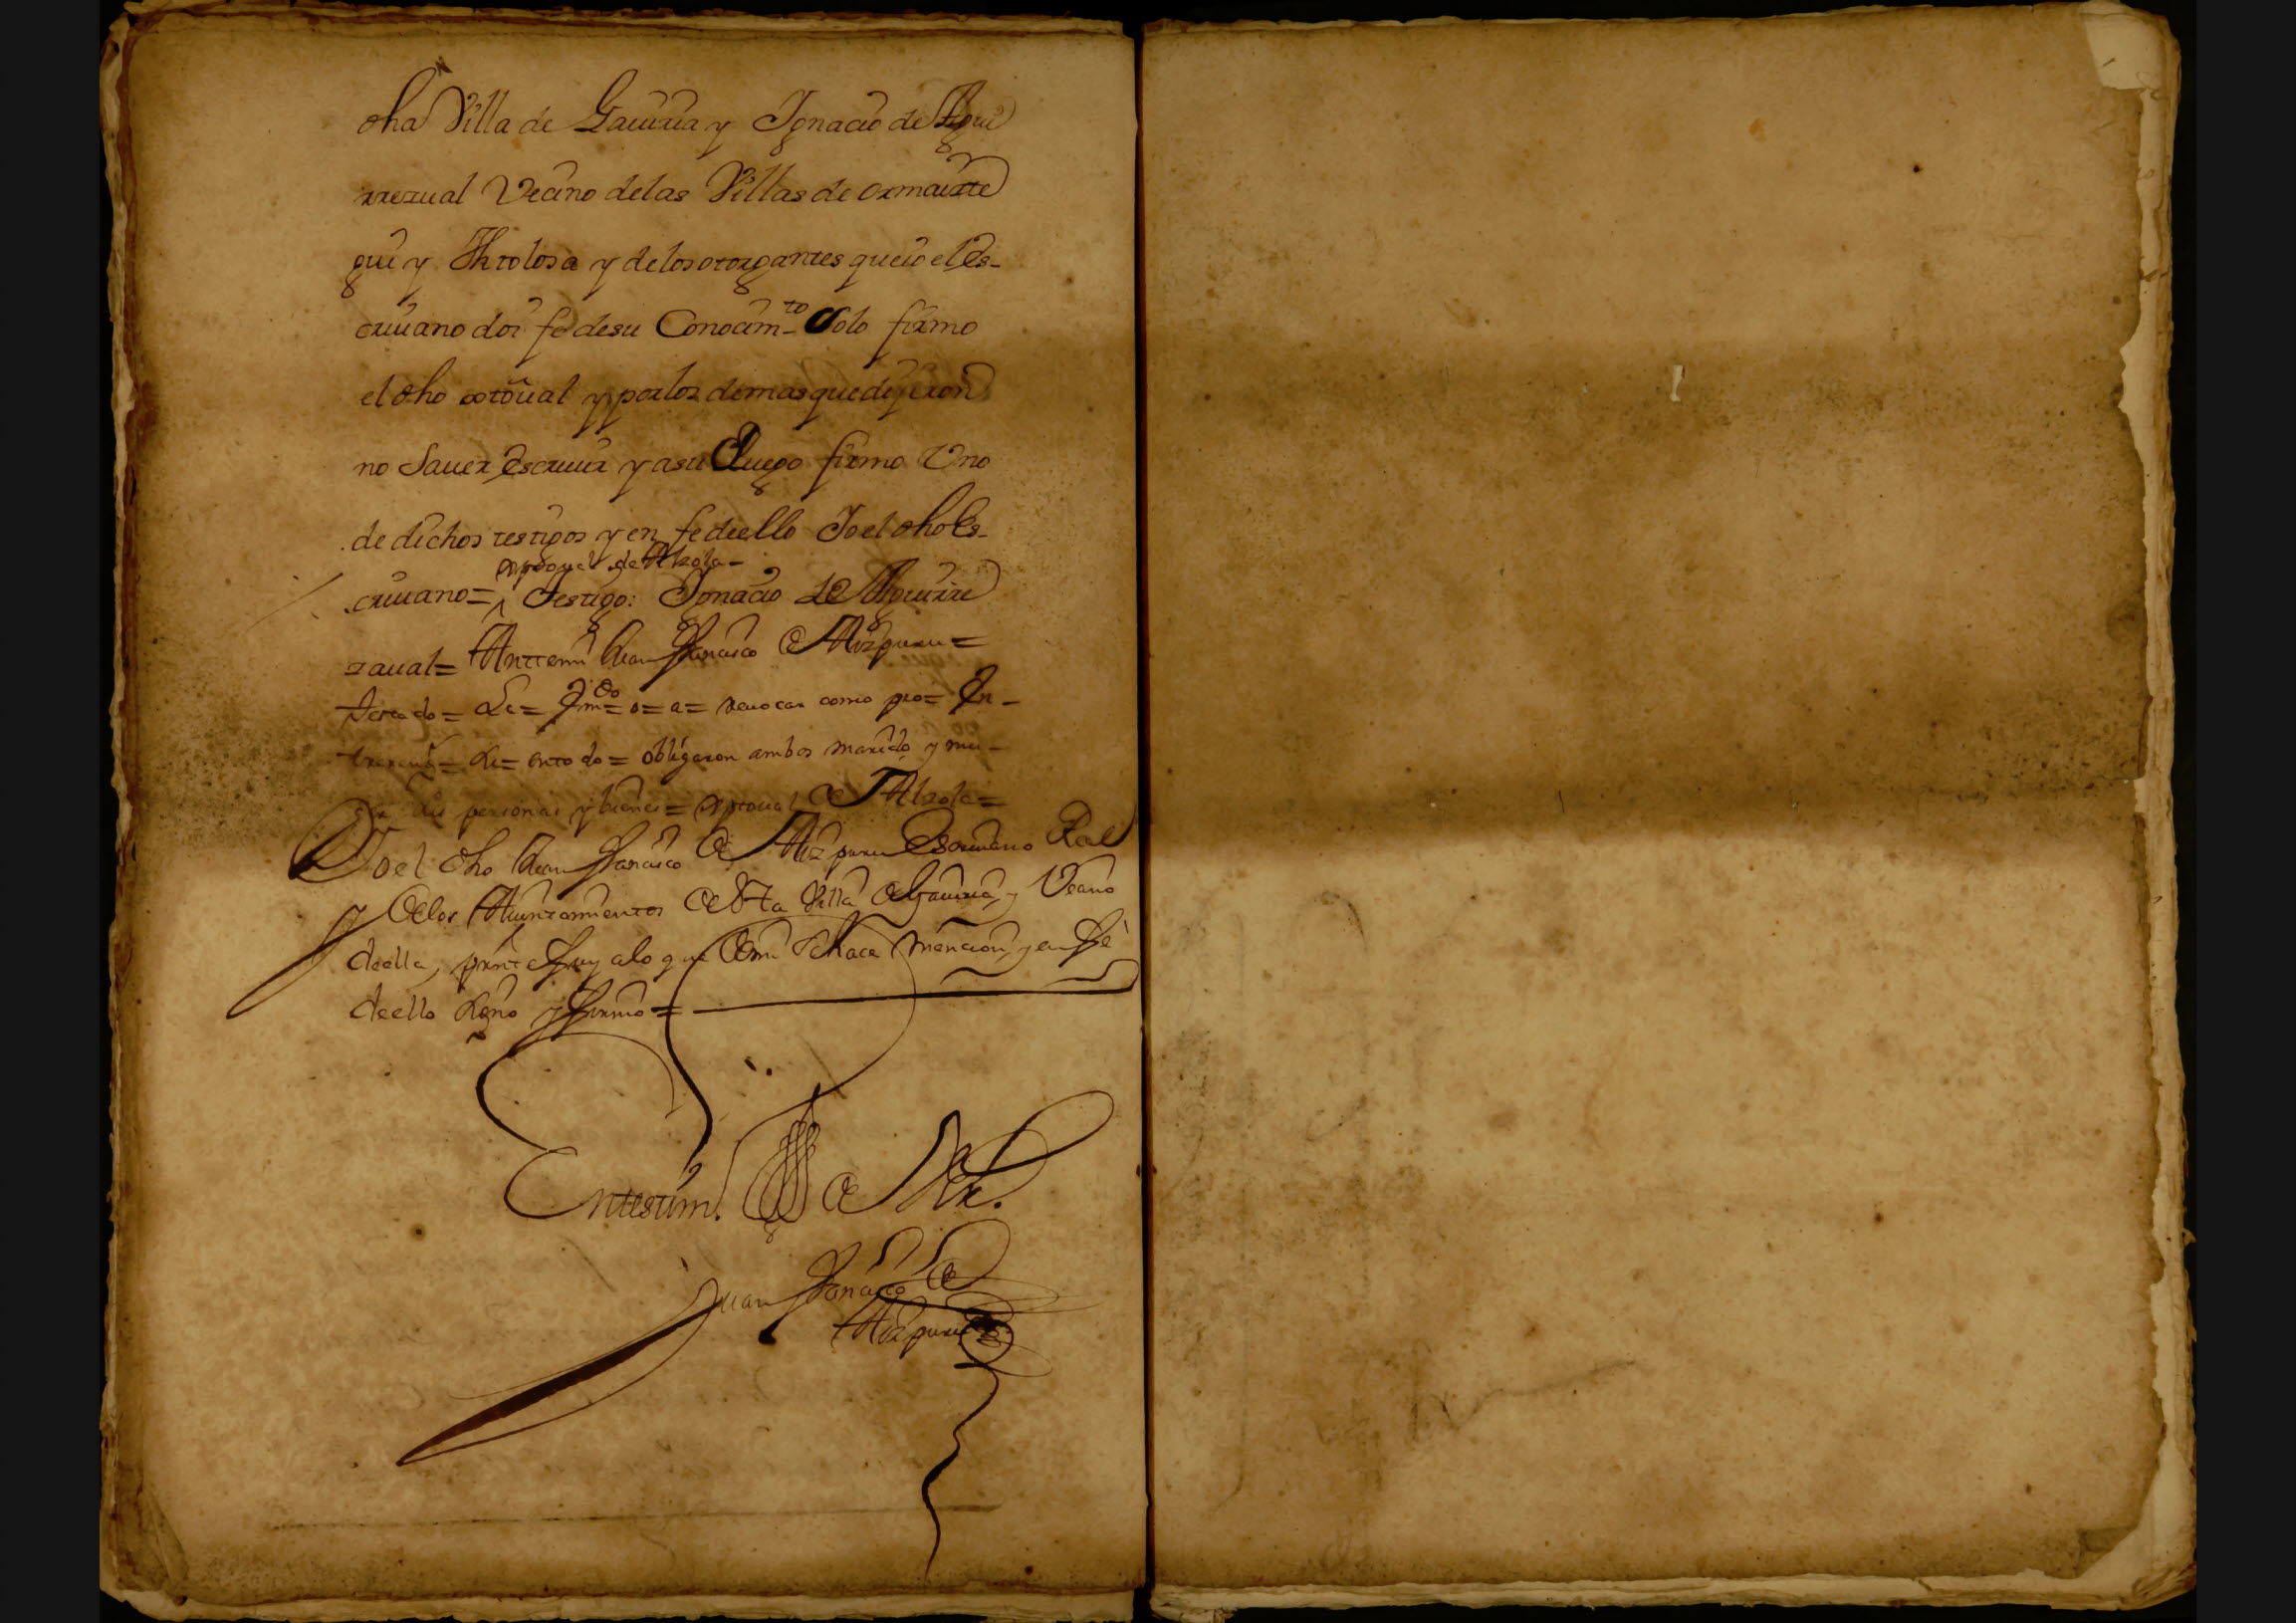 dha Villa de Gauiria y Ignacio de Agui
rrezual Vecino delas Villas de ormaizte
gui y Thtolosa y delos otorgantes queio el Es-
criuano doi fe desu Conocim-to Solo firmo
el dho xptoual y por los demas que dijeron
no Sauer Escriuir y asu Ruego firmo Vno
de dichos testigos y en fe de ello Jo el dho Es-
xptoual de Alzola-
criuano= Testigo: Ignacio de Aguirre
zaual= Anttemi Juan Francisco de Aizpuru=
Testado= = o= a= reuocar como pro= En-
= entodo= obligaron ambos marido y mu-
sus personas y bienes= xptoual de Alzola=
Jo el dho Juan Francisco de Aizpuru Escriuano Real
y delos Aiuntamientos de esta Villa de Gauiria, y Vecino
de ella, presnte fuy alo que de mi se hace mencion, y en fe
de ello signo y firmo=
En testim. de Ver.
Juan Francisco de
Aizpuru